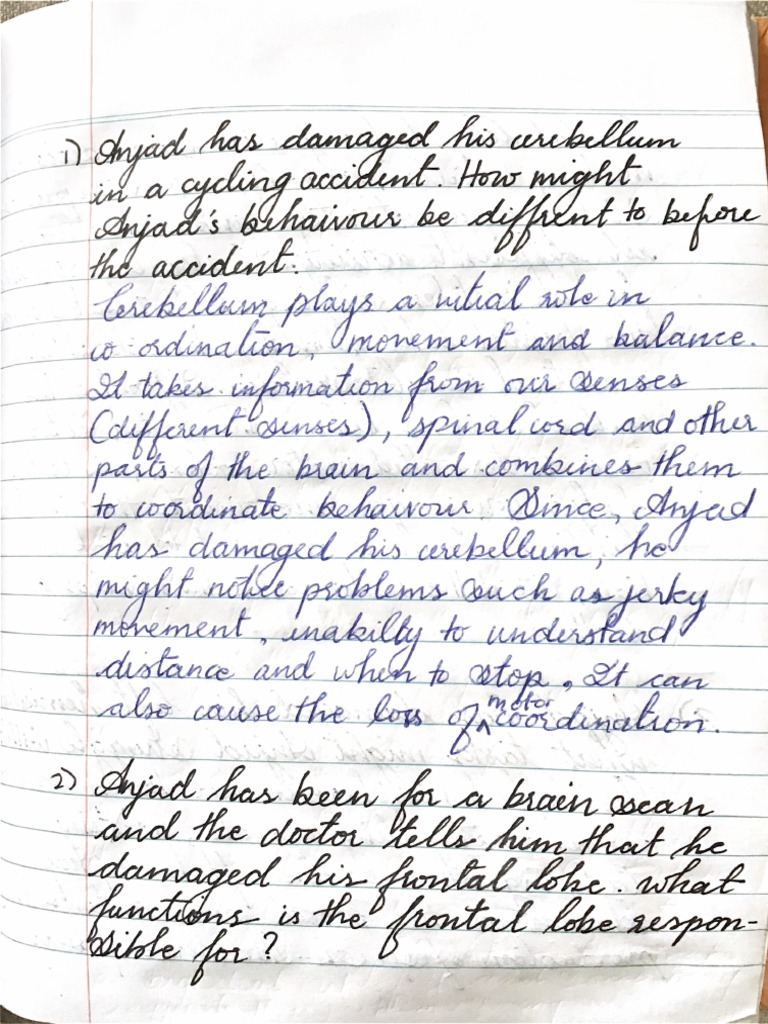 1) Anjad has damaged his cerebellum
in a cycling accident. How might
Anjad's behaivour be diffrent to before
the accident.
Cerebellum plays a vitial role in
co ordination, movement and balance.
It takes information from our senses
(different senses), spinal cord and other
parts of the brain and combines them
to coordinate behaivour. Since, Anjad
has damaged his cerebellum, he
might notice problems such as jerky
movement, inabilty to understand
distance and when to stop. It can
also cause the loss of ^ motor coordination.
2) Anjad has been for a brain scan
and the doctor tells him that he
damaged his frontal lobe. What
functions is the frontal lobe respon-
sible for?